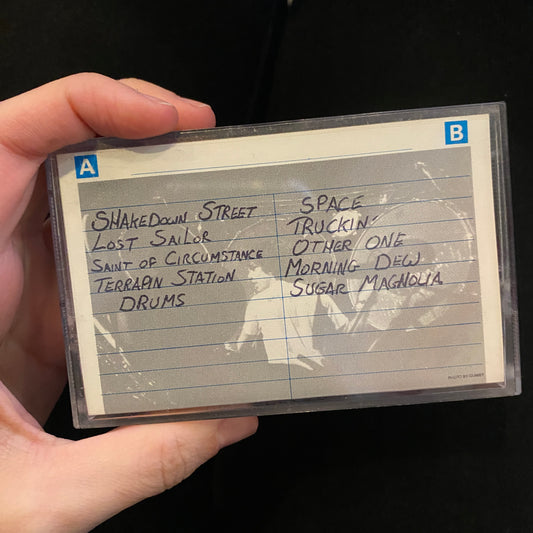 A
B
SHAKEDOWN STREET
LOST SAILOR
SAINT OF CIRCUMSTANCE
TERRAPIN STATION
DRUMS
SPACE
TRUCKIN'
OTHER ONE
MORNING DEW
SUGAR MAGNOLIA
PHOTO BY